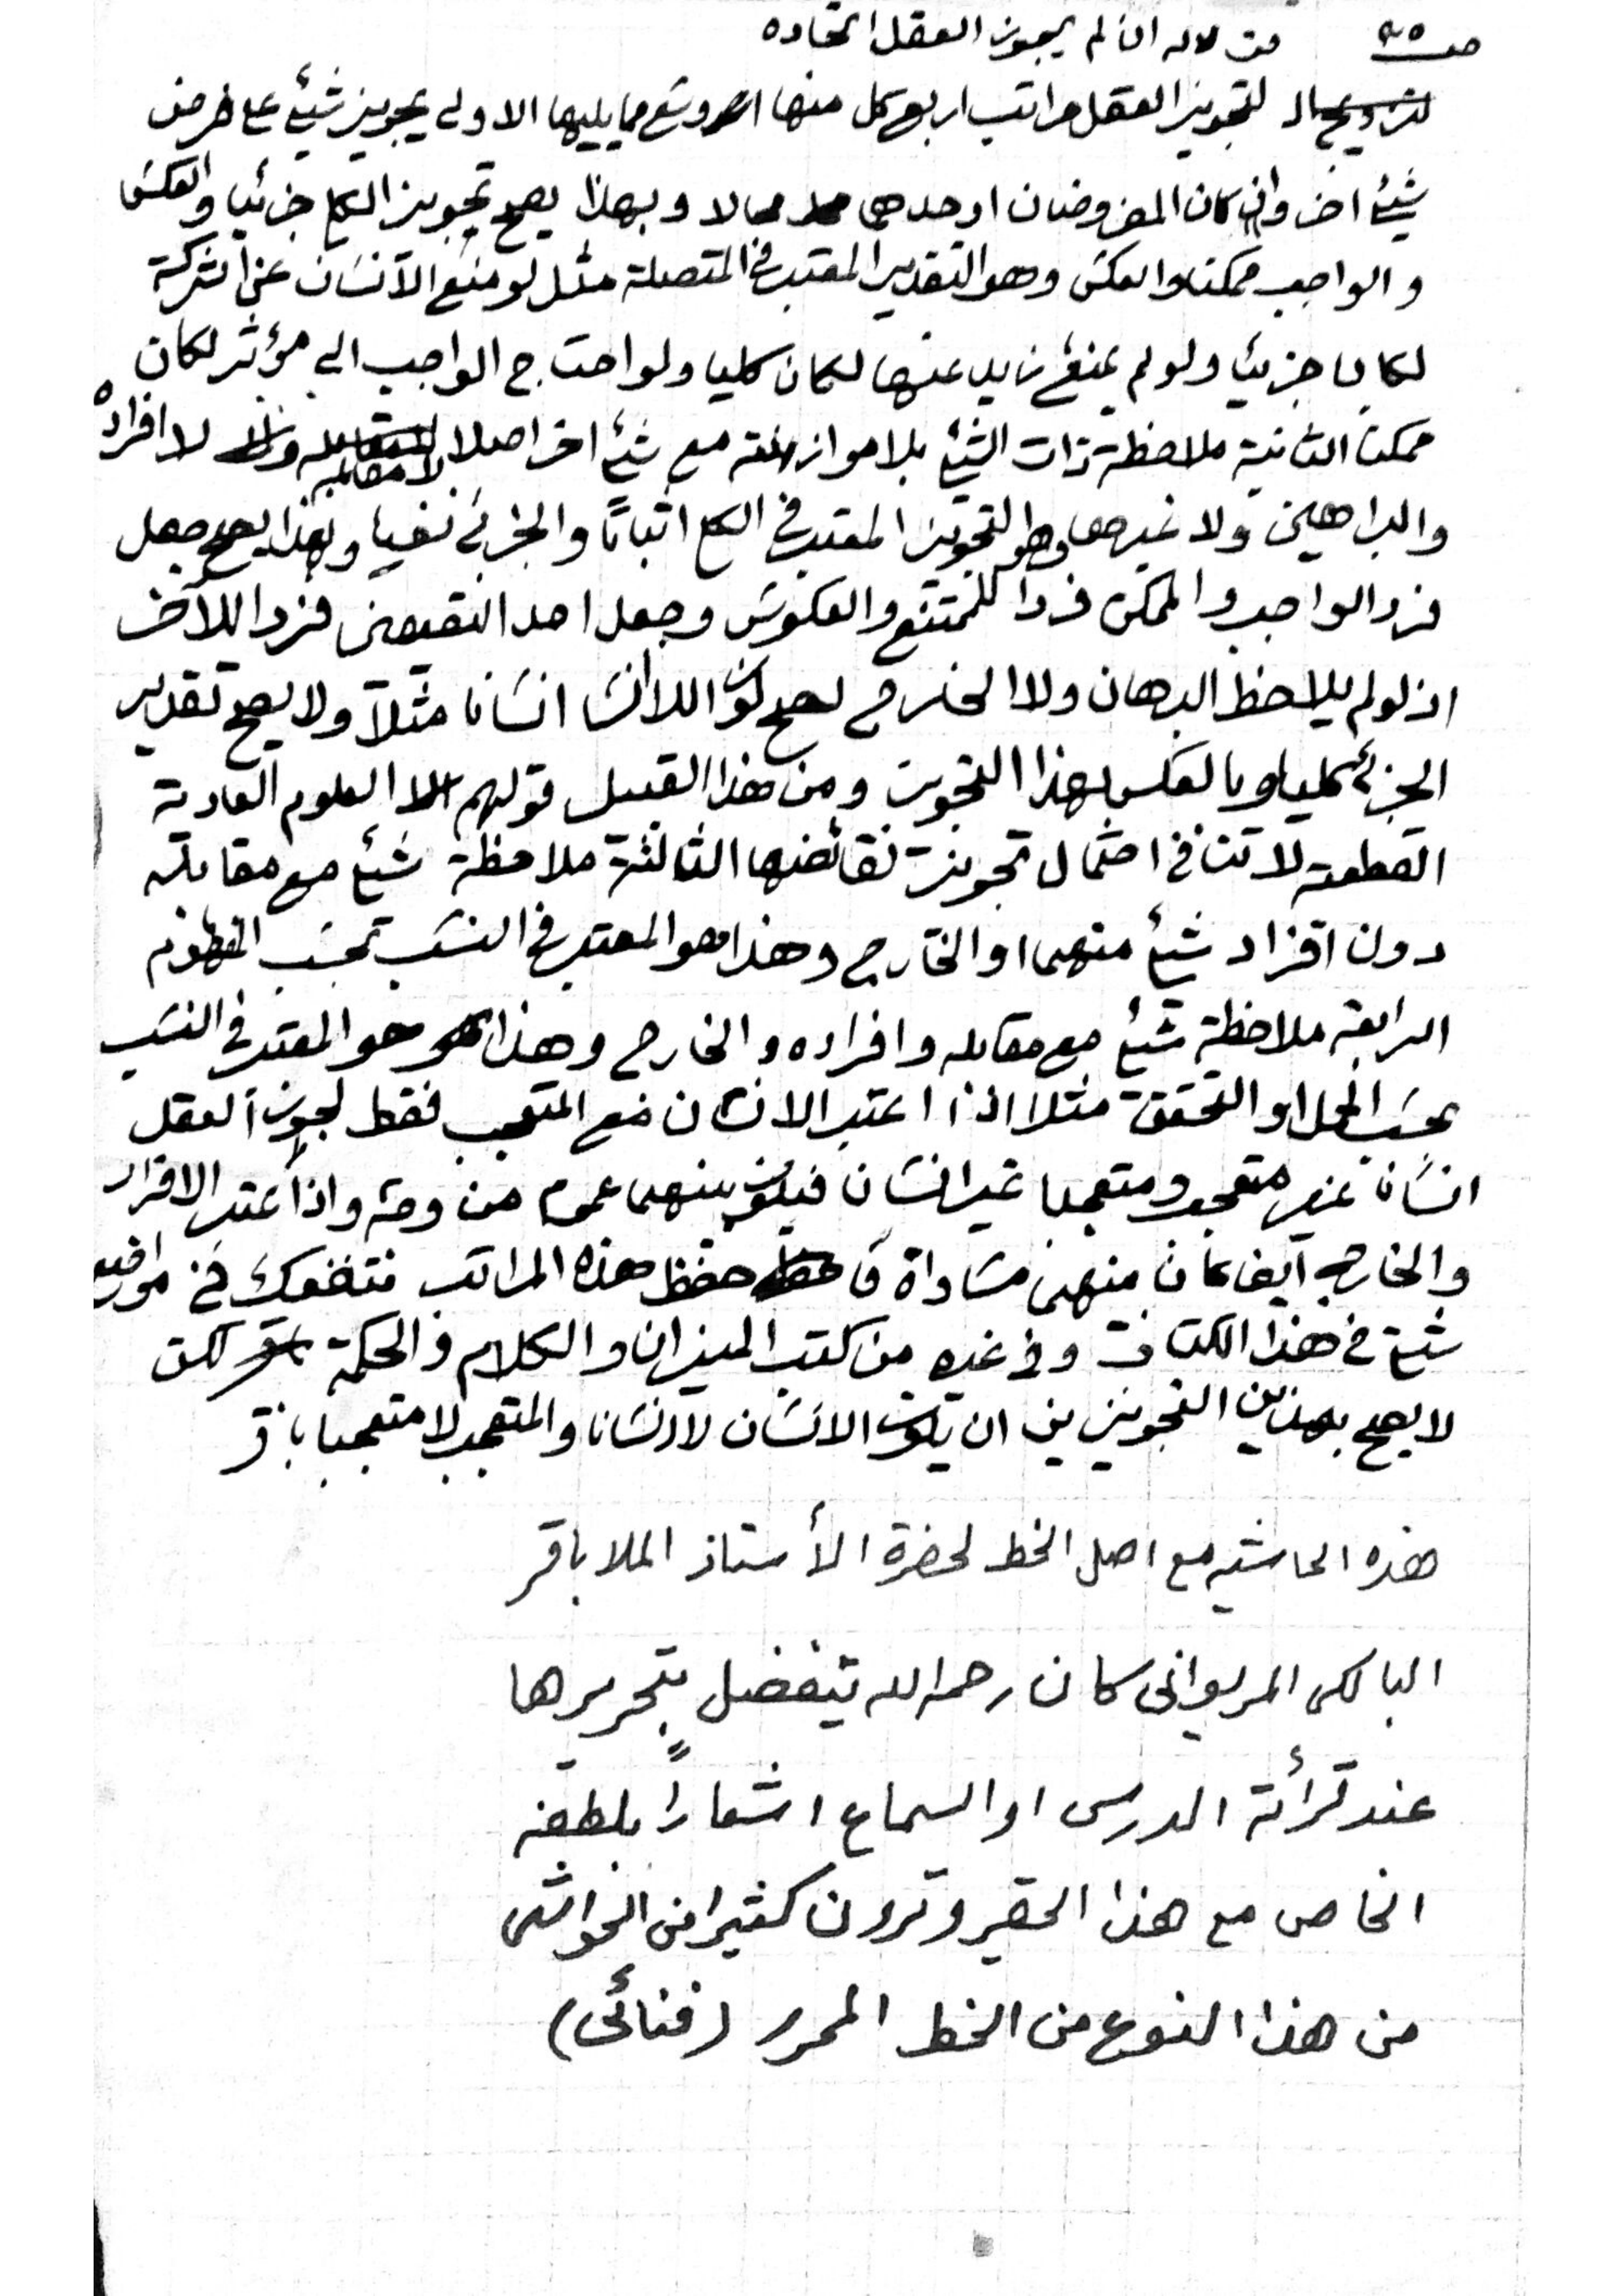 صـ ٩٥ من لاله ان لم يجوز العقل اتحاده
لتجويز العقل مراتب اربع كل منها اوسع مما يليها الاولى تجويز شئ على فرض
شئ اخر وان كان المفروضان او احدهما محالا وبهذا يصح تجويز الكلي جزئيا والعكس
والواجب ممكنا والعكس وهو التقدير المعتبر في المتصلة مثل لو منع الانسان عن الشركة
لكان جزئيا ولو لم يمنع زيد عنها لكان كليا ولو احتاج الواجب الى مؤثر لكان
ممكنا الثانية ملاحظة ذات الشئ بلا موازنته مع شئ اخر اصلا لا مقابله ولا لا افراده
والبراهين ولا غيرها وهو التجويز المعتبر في الكلي اثباتا والجزئي نفيا وبهذا يصح جعل
فرد الواجب والممكن فردا للممتنع والعكوس وجعل احد النقيضين فردا للآخر
اذ لو لم يلاحظ البرهان ولا الخارج لصح كون اللاانسان انسانا مثلا ولا يصح تقدير
الجزئي كليا وبالعكس بهذا التجويز ومن هذا القبيل قولهم العلوم العادية
القطعية لا تنافي احتمال تجويز نقائضها الثالثة ملاحظة شئ مع مقابله
دون افراد شئ منهما او الخارج وهذا هو المعتبر في النسب بحسب المفهوم
الرابعة ملاحظة شئ مع مقابله وافراده والخارج وهذا هو المعتبر في النسب
بحسب الحمل او التحقق مثلا اذا اعتبر الانسان مع المتعجب فقط لجوز العقل
انسانا غير متعجب ومتعجبا غير انسان فيكون بينهما عموم من وجه واذا اعتبر الافراد
والخارج ايضا كان بينهما مساواة فاحفظ هذه المراتب تنفعك في مواضع
شتى في هذا الكتاب وفي غيره من كتب الميزان والكلام والحكمة لكن
لا يصح بهذين التجويزين ان يكون الانسان لا انسانا والمتعجب لا متعجبا باقر
هذه الحاشيه مع اصل الخط لحضرة الأستاذ الملا باقر
البالكى المريوانى كان رحمه الله يتفضل بتحريرها
عند قرأئة الدرس او السماع اشعاراً بلطفه
الخاص مع هذا الحقير وترون كثيرا من الحواشى
من هذا النوع من الخط المحرر (فنائى)